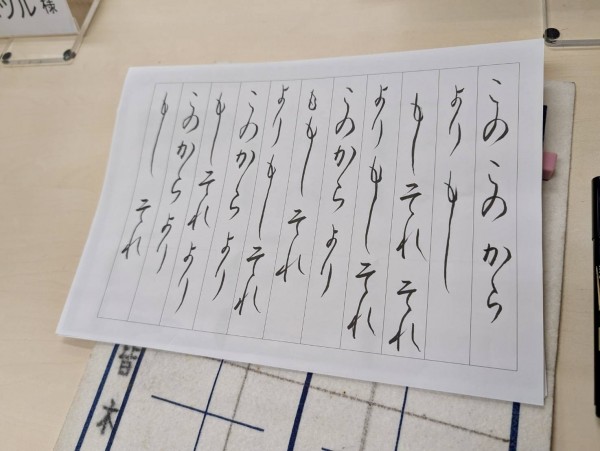 このこのから
よりもし
もしそれそれ
よりもしそれ
このからより
ももしそれ
よりもしそれ
このからより
もしそれより
このからより
もしそれ
ツル様
木